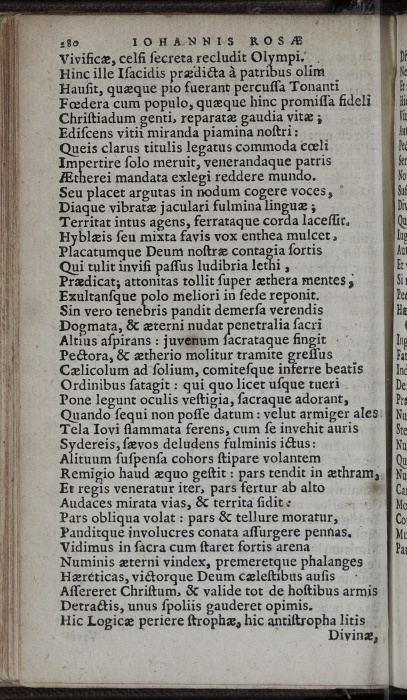 280 IOHANNIS ROSÆ
Vivificæ, celſi ſecreta recludit Olympi.
Hinc ille Iſacidis prædicta à patribus olim
Hauſit, quæque pio fuerant percuſſa Tonanti
Fœdera cum populo, quæque hinc promiſſa fideli
Chriſtiadum genti, reparatæ gaudia vitæ ;
Ediſcens vitii miranda piamina noſtri :
Queis clarus titulis legatus commoda cœli
Impertire ſolo meruit, venerandaque patris
Ætherei mandata exlegi reddere mundo.
Seu placet argutas in nodum cogere voces,
Diaque vibratæ jaculari fulmina linguæ ;
Territat intus agens, ferrataque corda laceſſit.
Hyblæis ſeu mixta favis vox enthea mulcet.
Placatumque Deum noſtræ contagia ſortis
Qui tulit inviſi paſſus ludibria lethi ,
Prædicat; attonitas tollit ſuper æthera mentes ;
Exultanſque polo meliori in ſede reponit.
Sin vero tenebris pandit demerſa verendis
Dogmata, & æterni nudat penetralia ſacri
Altius aſpirans : juvenum ſacrataque fingit
Pectora, & ætherio molitur tramite greſſus
Cælicolum ad ſolium, comiteſque inferre beatis
Ordinibus ſatagit : qui quo licet uſque tueri
Pone legunt oculis veſtigia, ſacraque adorant,
Quando ſequi non poſſe datum : velut armiger ales
Tela Iovi flammata ferens, cum ſe invehit auris
Sydereis, ſævos deludens fulminis ictus :
Alituum ſuſpenſa cohors ſtipare volantem
Remigio haud æquo geſtit : pars tendit in æthram,
Et regis veneratur iter, pars fertur ab alto
Audaces mirata vias, & territa ſidit :
Pars obliqua volat : pars & tellure moratur,
Panditque involucres conata aſſurgere pennas.
Vidimus in ſacra cum ſtaret fortis arena
Numinis æterni vindex, premeretque phalanges
Hæreticas, victorque Deum cæleſtibus auſis
Aſſereret Chriſtum, & valide tot de hoſtibus armis
Detractis, unus ſpoliis gauderet opimis.
Hic Logicæ periere ſtrophæ, hic antiſtropha litis
Divinæ,